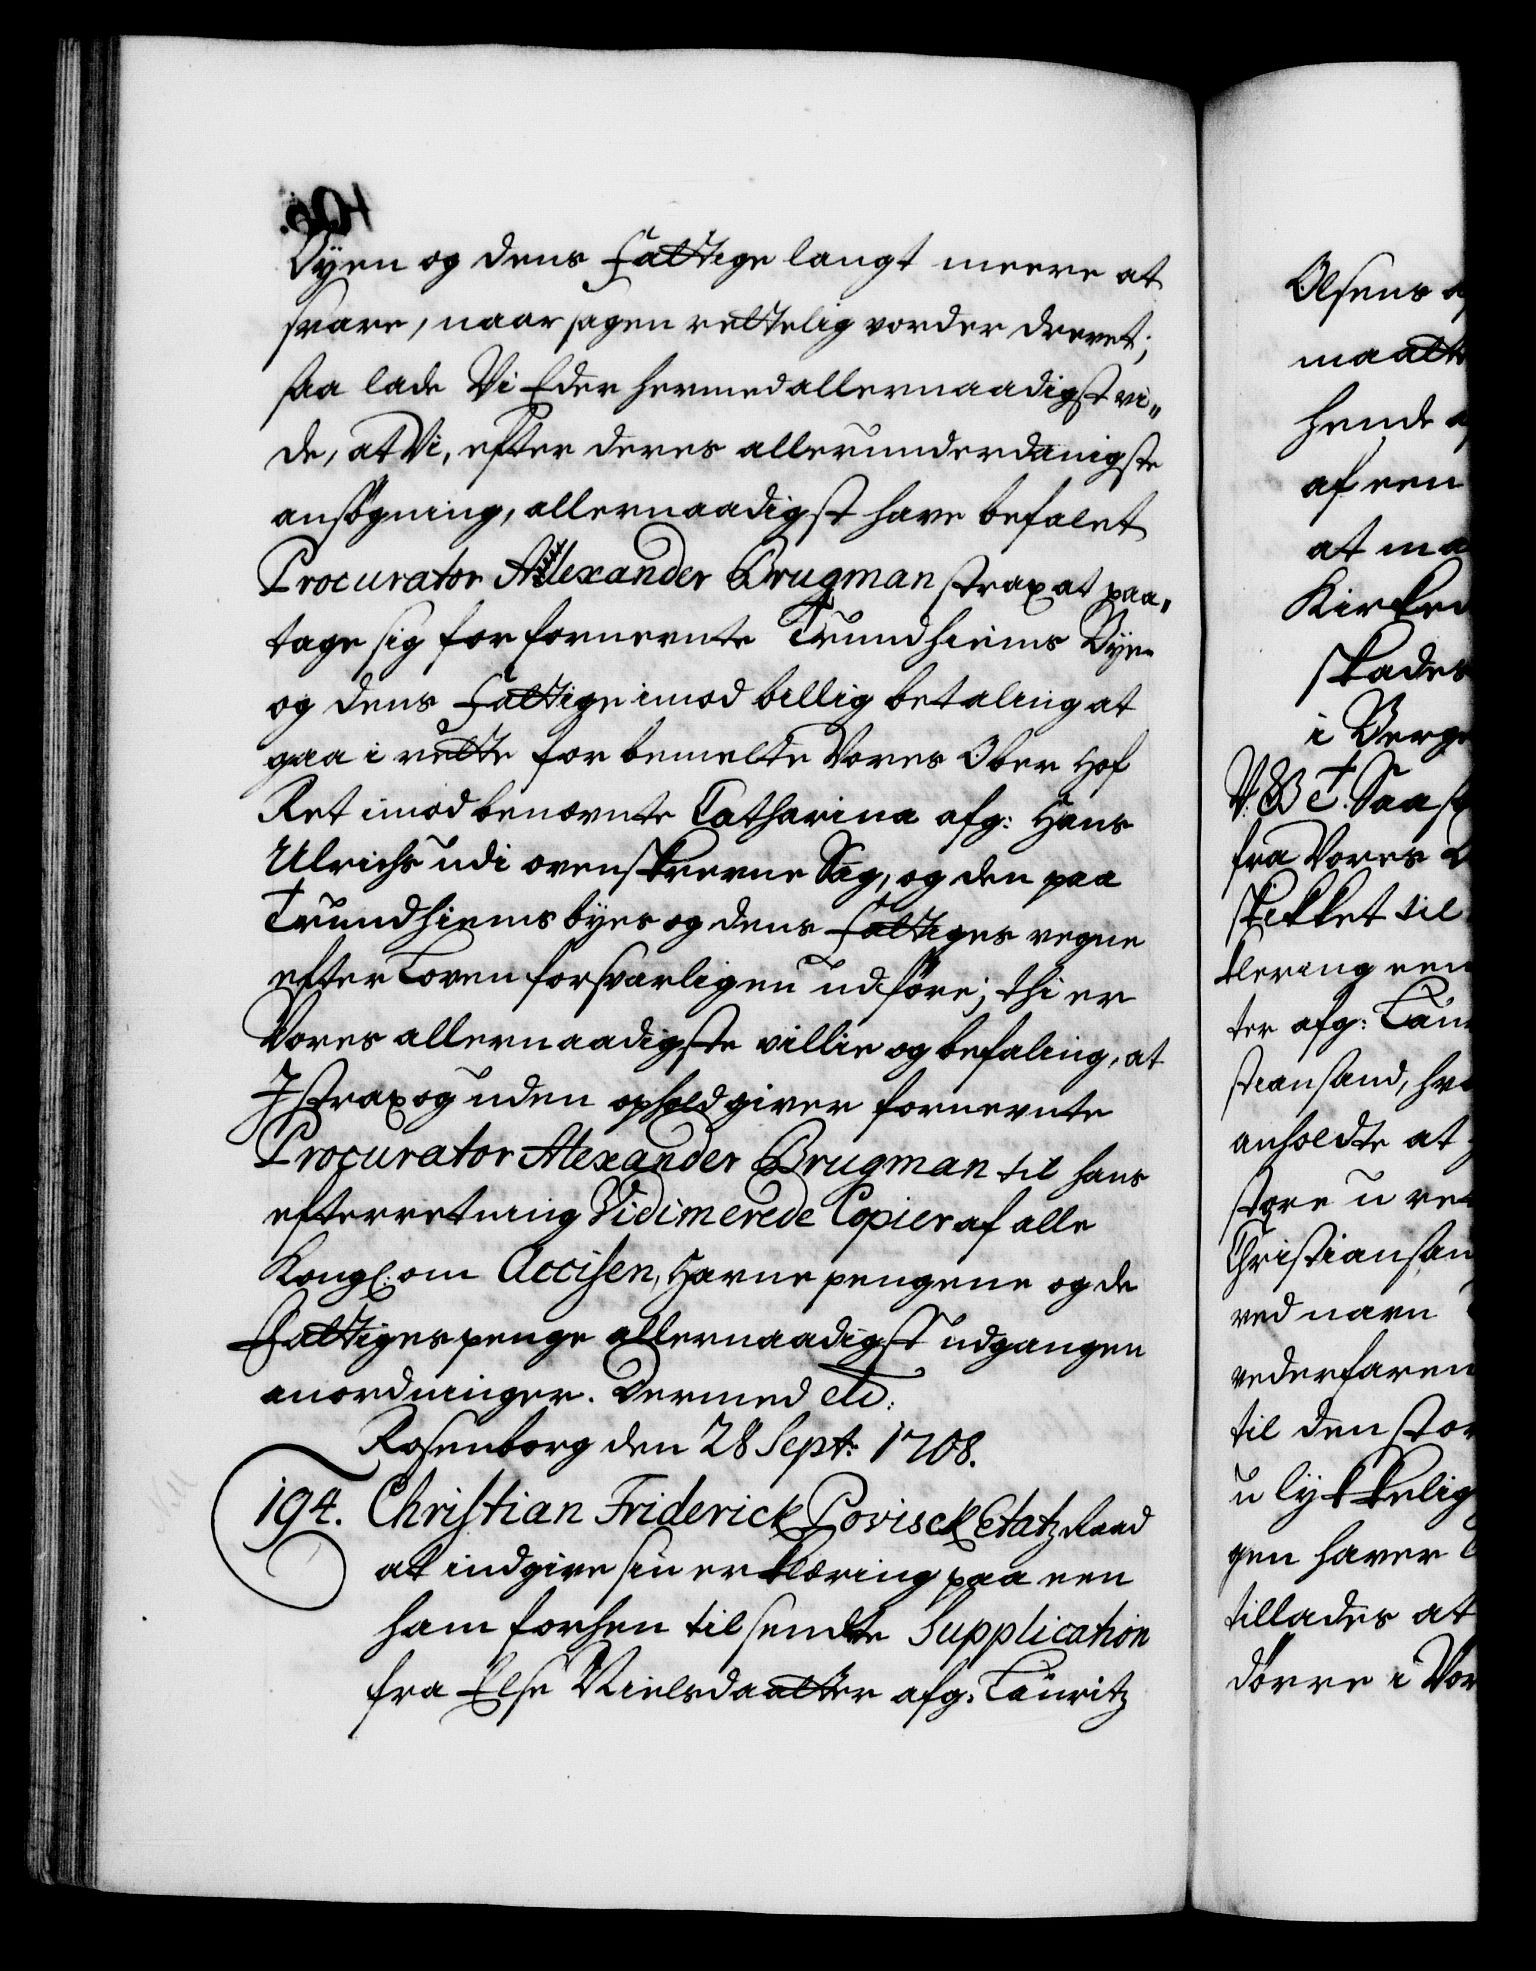 Byen og dens Fattige langt meere at
svare, naar sagen rettelig vorder drevet;
saa lade Vi Eder hermed allernaadigst vi„
de, at Vi, efter deres allerunderdanigste
ansøgning, allernaadigst have befalet
Procurator Alexander Brugman strax at paa„
tage sig for fornevnte Trundhiems Bye
og dens Fattige imod billig betaling at
gaa i rette for bemelte Vores Ober Hof
Ret imod benævnte Catharina afg: Hans
Ulrichs udi ovenskrevne Sag, og den paa
Trundhiems byes og dens Fattiges vegne
efter Loven forsvarligen udføre; thi er
Vores allernaadigste villie og befaling, at
I strax og uden ophold giver fornevnte
Procurator Alexander Brugman til hans
efterretning Vidimerede Copier af alle
Kongl: om Accisen, Havne pengene og de
Fattiges penge allernaadigst udgangen
anordninger. Dermed etc:
Rosenborg den 28 Sept: 1708.
194. Christian Friderick Povisck Etatz Raad
at indgive sin erklæring paa een
ham forhen tilsendte Supplication
fra Else Nielsdaatter afg: Lauritz
Olsens
maatte
hende
af een
at
Kirken
skades
i Berge
V. G. T. Saa
fra Vores
skikket til
klering een
ter afg: Lau
stiansand,
anholdte at
store u ret
Christiansan
ved navn
vederfaren
til den stor
ulykkelig
gen haver
tillades at
dørre i Vor